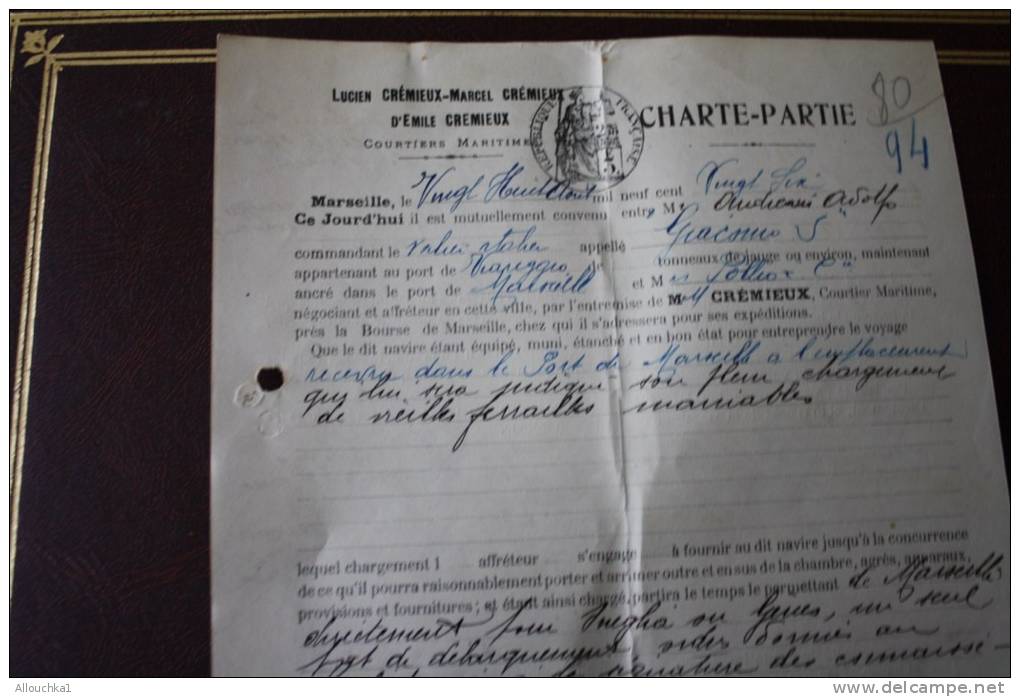 LUCIEN CRÉMIEUX-MARCEL CRÉMIEUX
D'EMILE CREMIEUX
COURTIERS MARITIME
REPUBLIQUE FRANÇAISE
CHARTE-PARTIE
80
94
Marseille, le Vingt Huit Aout mil neuf cent Vingt Six
Ce Jourd'hui il est mutuellement convenu entre Mr Adolfo
commandant le appellé Giacomo S
appartenant au port de Viareggio de tonneaux de jauge ou environ, maintenant
ancré dans le port de Marseille et M
négociant et affréteur en cette ville, par l'entremise de MM CRÉMIEUX, Courtier Maritime,
près la Bourse de Marseille, chez qui il s'adressera pour ses expéditions.
Que le dit navire étant équipé, muni, étanché et en bon état pour entreprendre le voyage
recevra dans le Port de Marseille a l'emplacement
qui lui sera indiqué son plein chargement
de vieilles ferrailles maniables
lequel chargement l affréteur s'engage à fournir au dit navire jusqu'à la concurrence
de ce qu'il pourra raisonnablement porter et arrimer outre et en sus de la chambre, agrès, apparaux,
provisions et fournitures; et étant ainsi chargé, partira le temps le permettant de Marseille
directement pour ou un seul
port de débarquement ordre donné au
de signature des connaisse-
Allouchka1
www.delcampe.net